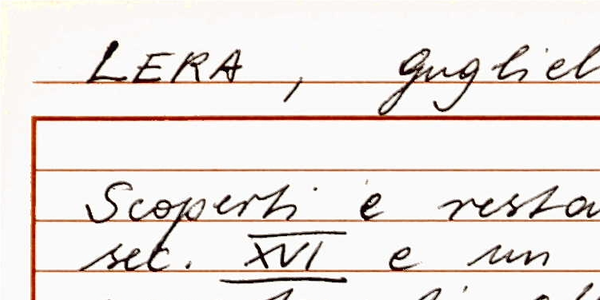 LERA, Gugliel
Scoperti e resta
sec. XVI e un